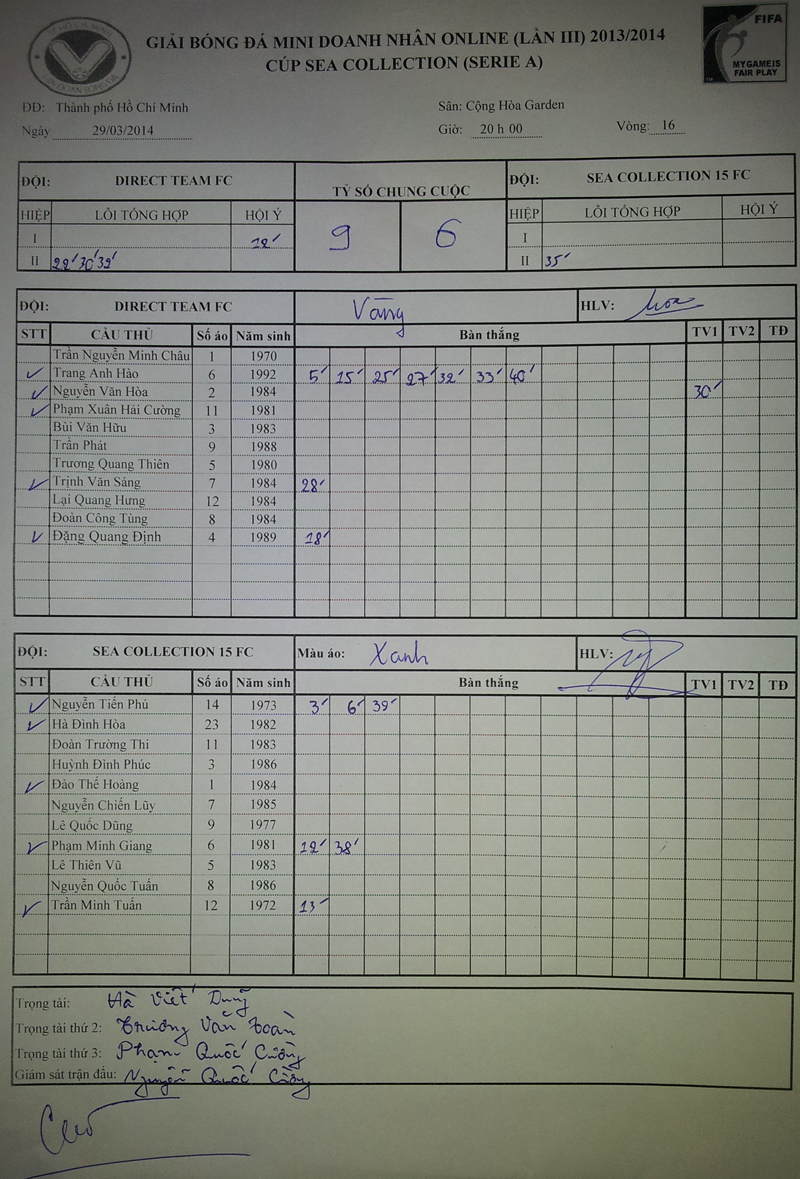 GIẢI BÓNG ĐÁ MINI DOANH NHÂN ONLINE (LẦN III) 2013/2014
CÚP SEA COLLECTION (SERIE A)
FIFA
MYGAMEIS
FAIR PLAY
ĐĐ: Thành phố Hồ Chí Minh
Sân: Cộng Hòa Garden
Ngày 29/03/2014
Giờ: 20 h 00
Vòng: 16
ĐỘI: DIRECT TEAM FC
TỶ SỐ CHUNG CUỘC
ĐỘI: SEA COLLECTION 15 FC
HIỆP LỖI TỔNG HỢP HỘI Ý
9 6
HIỆP LỖI TỔNG HỢP HỘI Ý
I 12'
I
II 22' 30' 32'
II 35'
ĐỘI: DIRECT TEAM FC Vàng HLV:
STT CẦU THỦ Số áo Năm sinh Bàn thắng TV1 TV2 TĐ
Trần Nguyễn Minh Châu 1 1970
Trang Anh Hào 6 1992 5' 15' 25' 27' 32' 33' 40'
Nguyễn Văn Hòa 2 1984 30'
Phạm Xuân Hải Cường 11 1981
Bùi Văn Hữu 3 1983
Trần Phát 9 1988
Trương Quang Thiên 5 1980
Trịnh Văn Sáng 7 1984 28'
Lại Quang Hưng 12 1984
Đoàn Công Tùng 8 1984
Đặng Quang Định 4 1989 18'
ĐỘI: SEA COLLECTION 15 FC Màu áo: Xanh HLV:
STT CẦU THỦ Số áo Năm sinh Bàn thắng TV1 TV2 TĐ
Nguyễn Tiến Phú 14 1973 3' 6' 39'
Hà Đình Hòa 23 1982
Đoàn Trường Thi 11 1983
Huỳnh Đình Phúc 3 1986
Đào Thế Hoàng 1 1984
Nguyễn Chiến Lũy 7 1985
Lê Quốc Dũng 9 1977
Phạm Minh Giang 6 1981 12' 38'
Lê Thiên Vũ 5 1983
Nguyễn Quốc Tuấn 8 1986
Trần Minh Tuấn 12 1972 13'
Trọng tài: Hà Viết Dũng
Trọng tài thứ 2: Trương Văn Toàn
Trọng tài thứ 3: Phạm Quốc Cường
Giám sát trận đấu: Nguyễn Quốc Cường